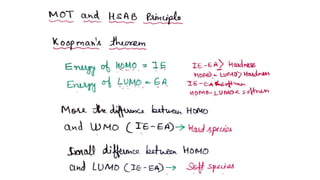 MOT and HSAB Principle
Koopman's theorem
Energy of HOMO = IE
Energy of LUMO = EA
IE-EA > Hardness
HOMO-LUMO > Hardness
IE-EA < soften
HOMO-LUMO < soften
More the difference between HOMO
and LUMO (IE-EA) → Hard species
Small difference between HOMO
and LUMO (IE-EA) → Soft species